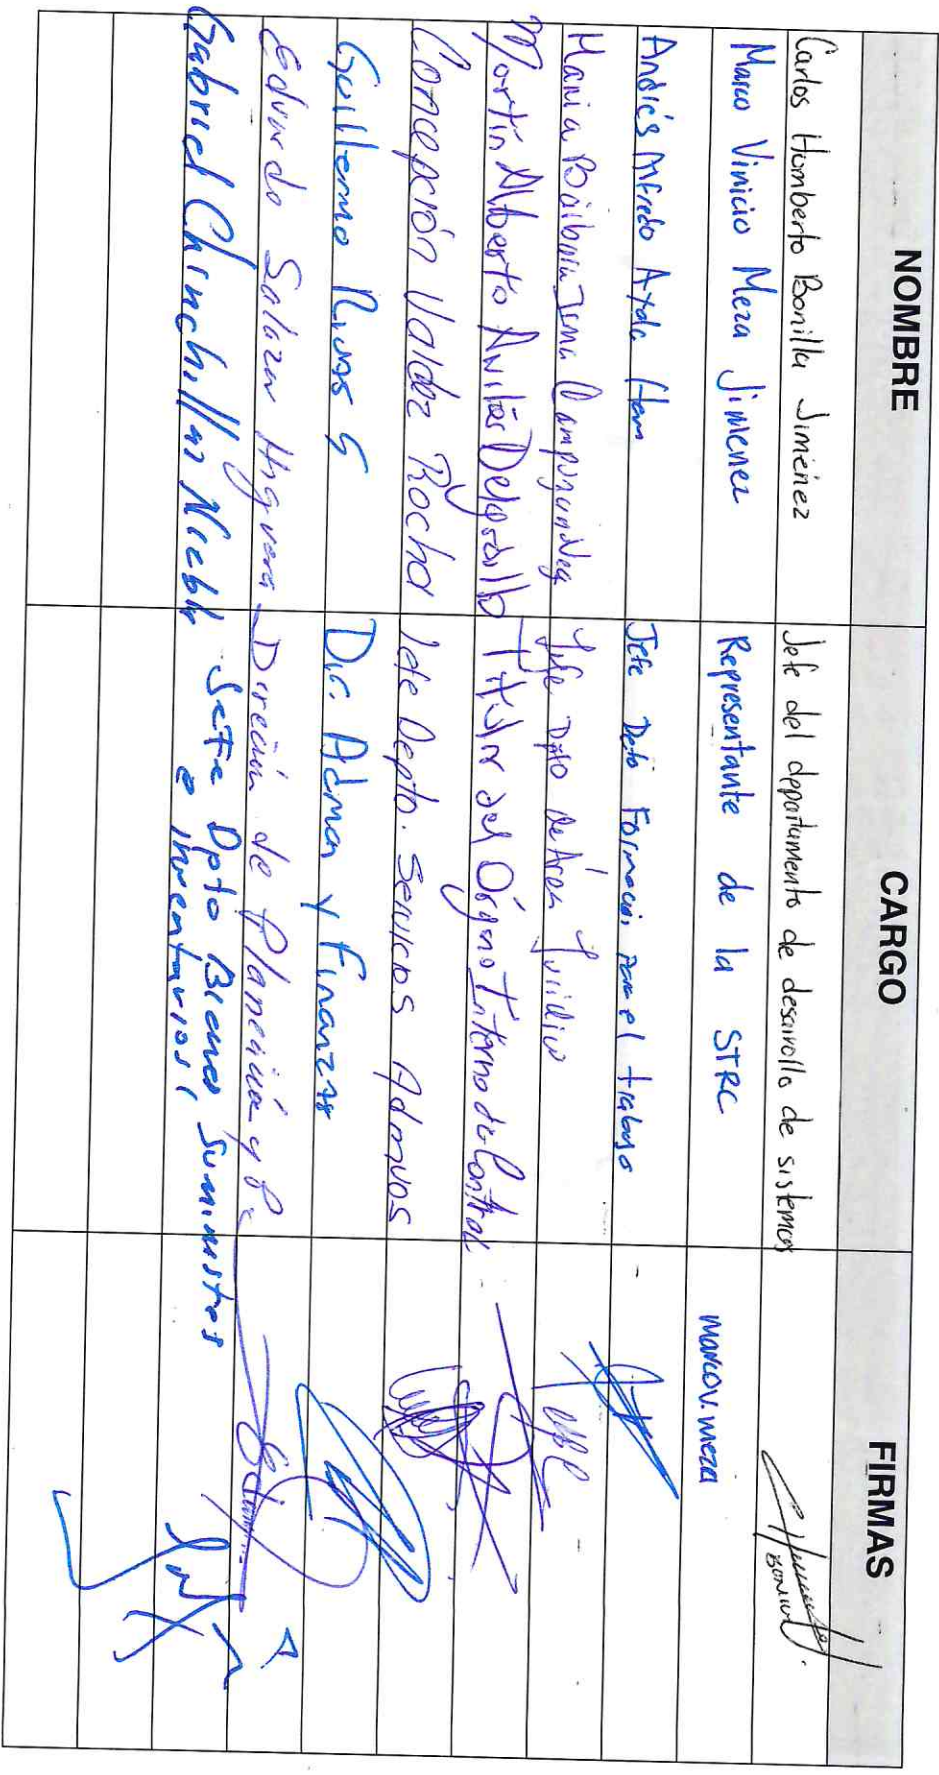 NOMBRE CARGO FIRMAS
Carlos Humberto Bonilla Jiménez Jefe del departamento de desarrollo de sistemas BONILLA
Marco Vinicio Meza Jimenez Representante de la STRC marcov.meza
Andrés Alfredo Ayala Jefe Depto Formación para el trabajo
Maria Jefe Dpto de Area Juridico
Martín Alberto Avilés Titular del Órgano Interno de Control
Concepción Valdez Rocha Jefe Depto. Servicios Admvos
Guillermo Rivas S Dir. Admon y Finanzas
Eduardo Salazar Higuera Dirección de Planeación y
Gabriel Chinchillas Niebla Jefe Dpto Bienes, Suministros
e Inventarios